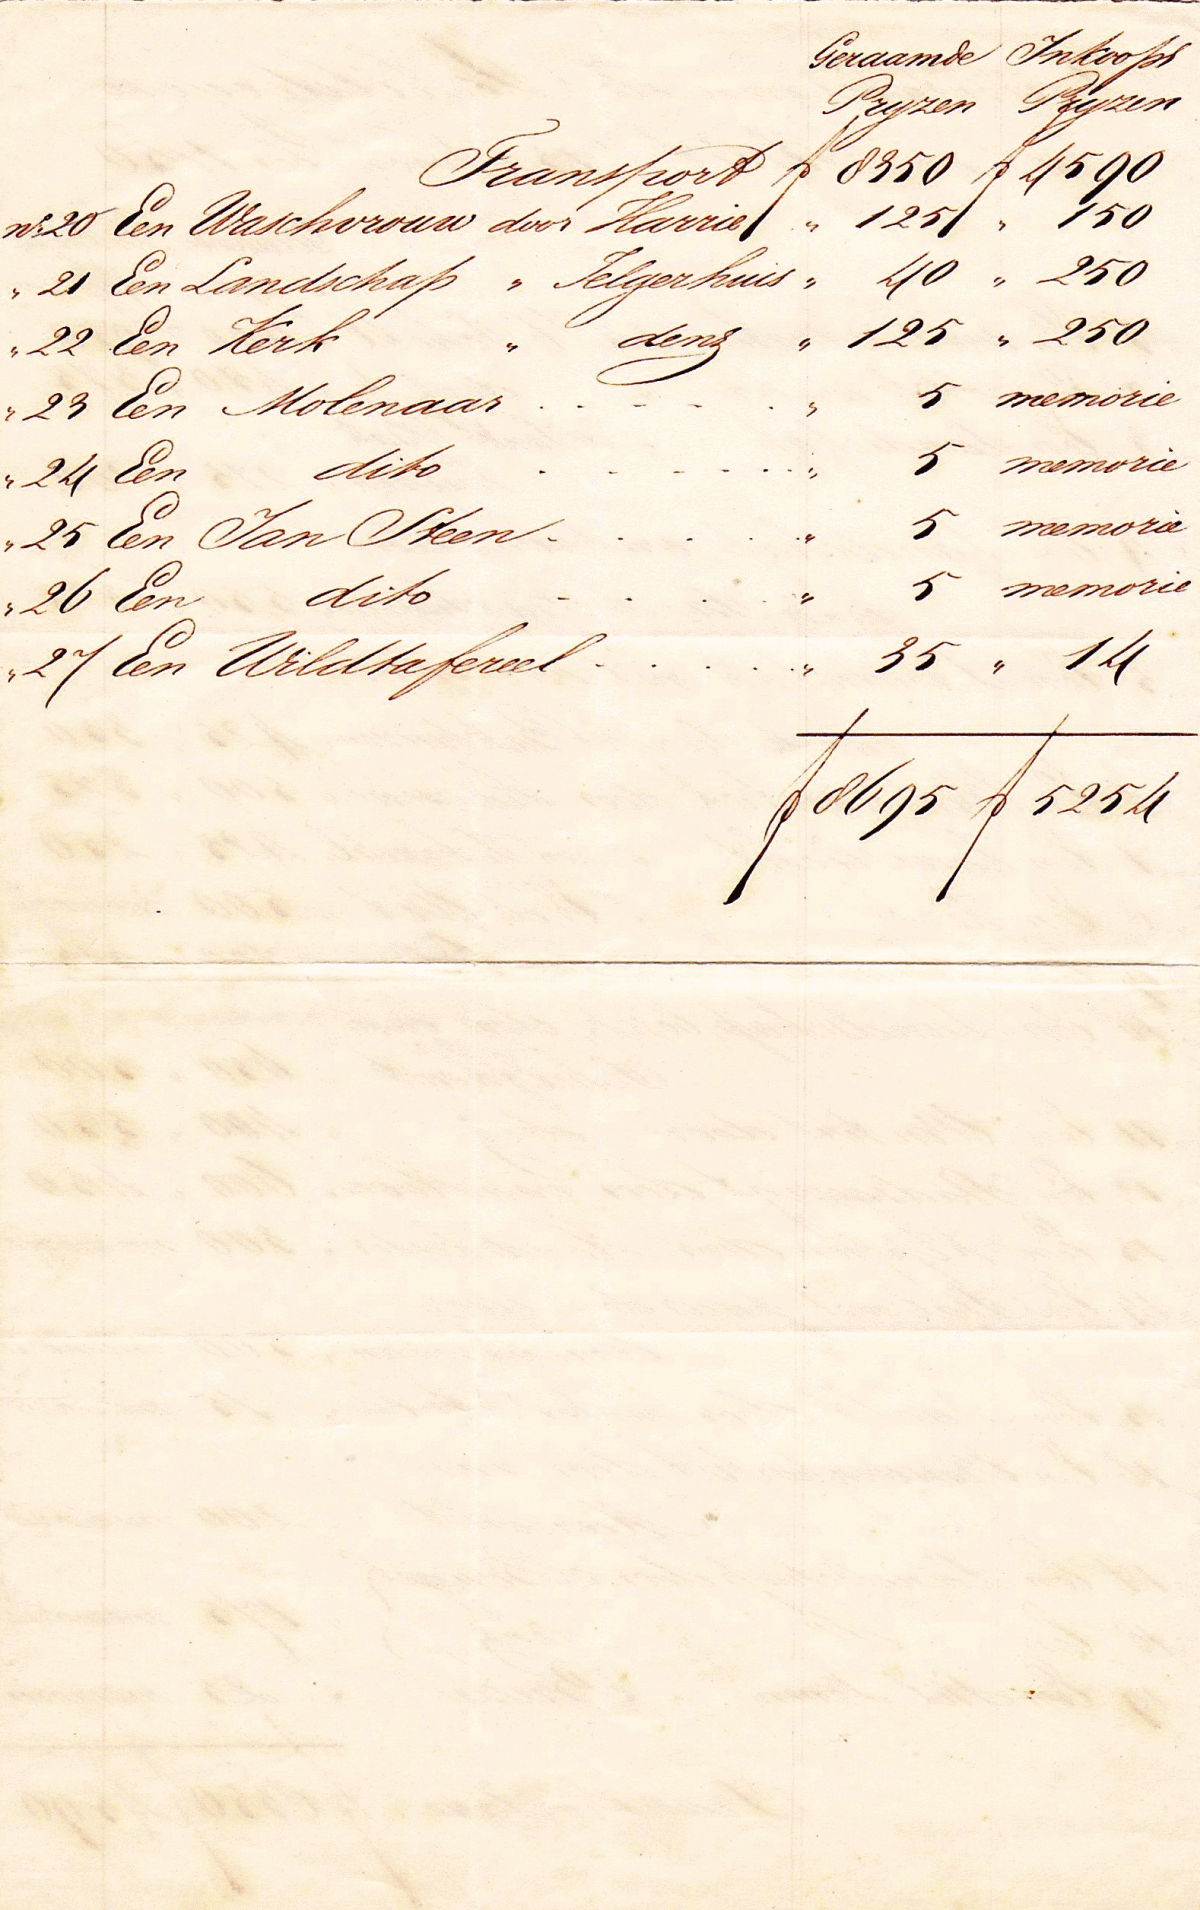 Geraamde Inkoops
Pryzen Pryzen
Transport f 8350 f 4590
no. 20 Een Waschvrouw door Harrie „ 125 „ 150
„ 21 Een Landschap „ Jelgerhuis „ 40 „ 250
„ 22 Een Kerk „ denz „ 125 „ 250
„ 23 Een Molenaar . - - - - . „ 5 memorie
„ 24 Een dito . - - - - . „ 5 memorie
„ 25 Een Jan Steen . . . . „ 5 memorie
„ 26 Een dito - . . . „ 5 memorie
„ 27 Een Wildtafereel - . . . . „ 35 „ 14
f 8695 f 5254